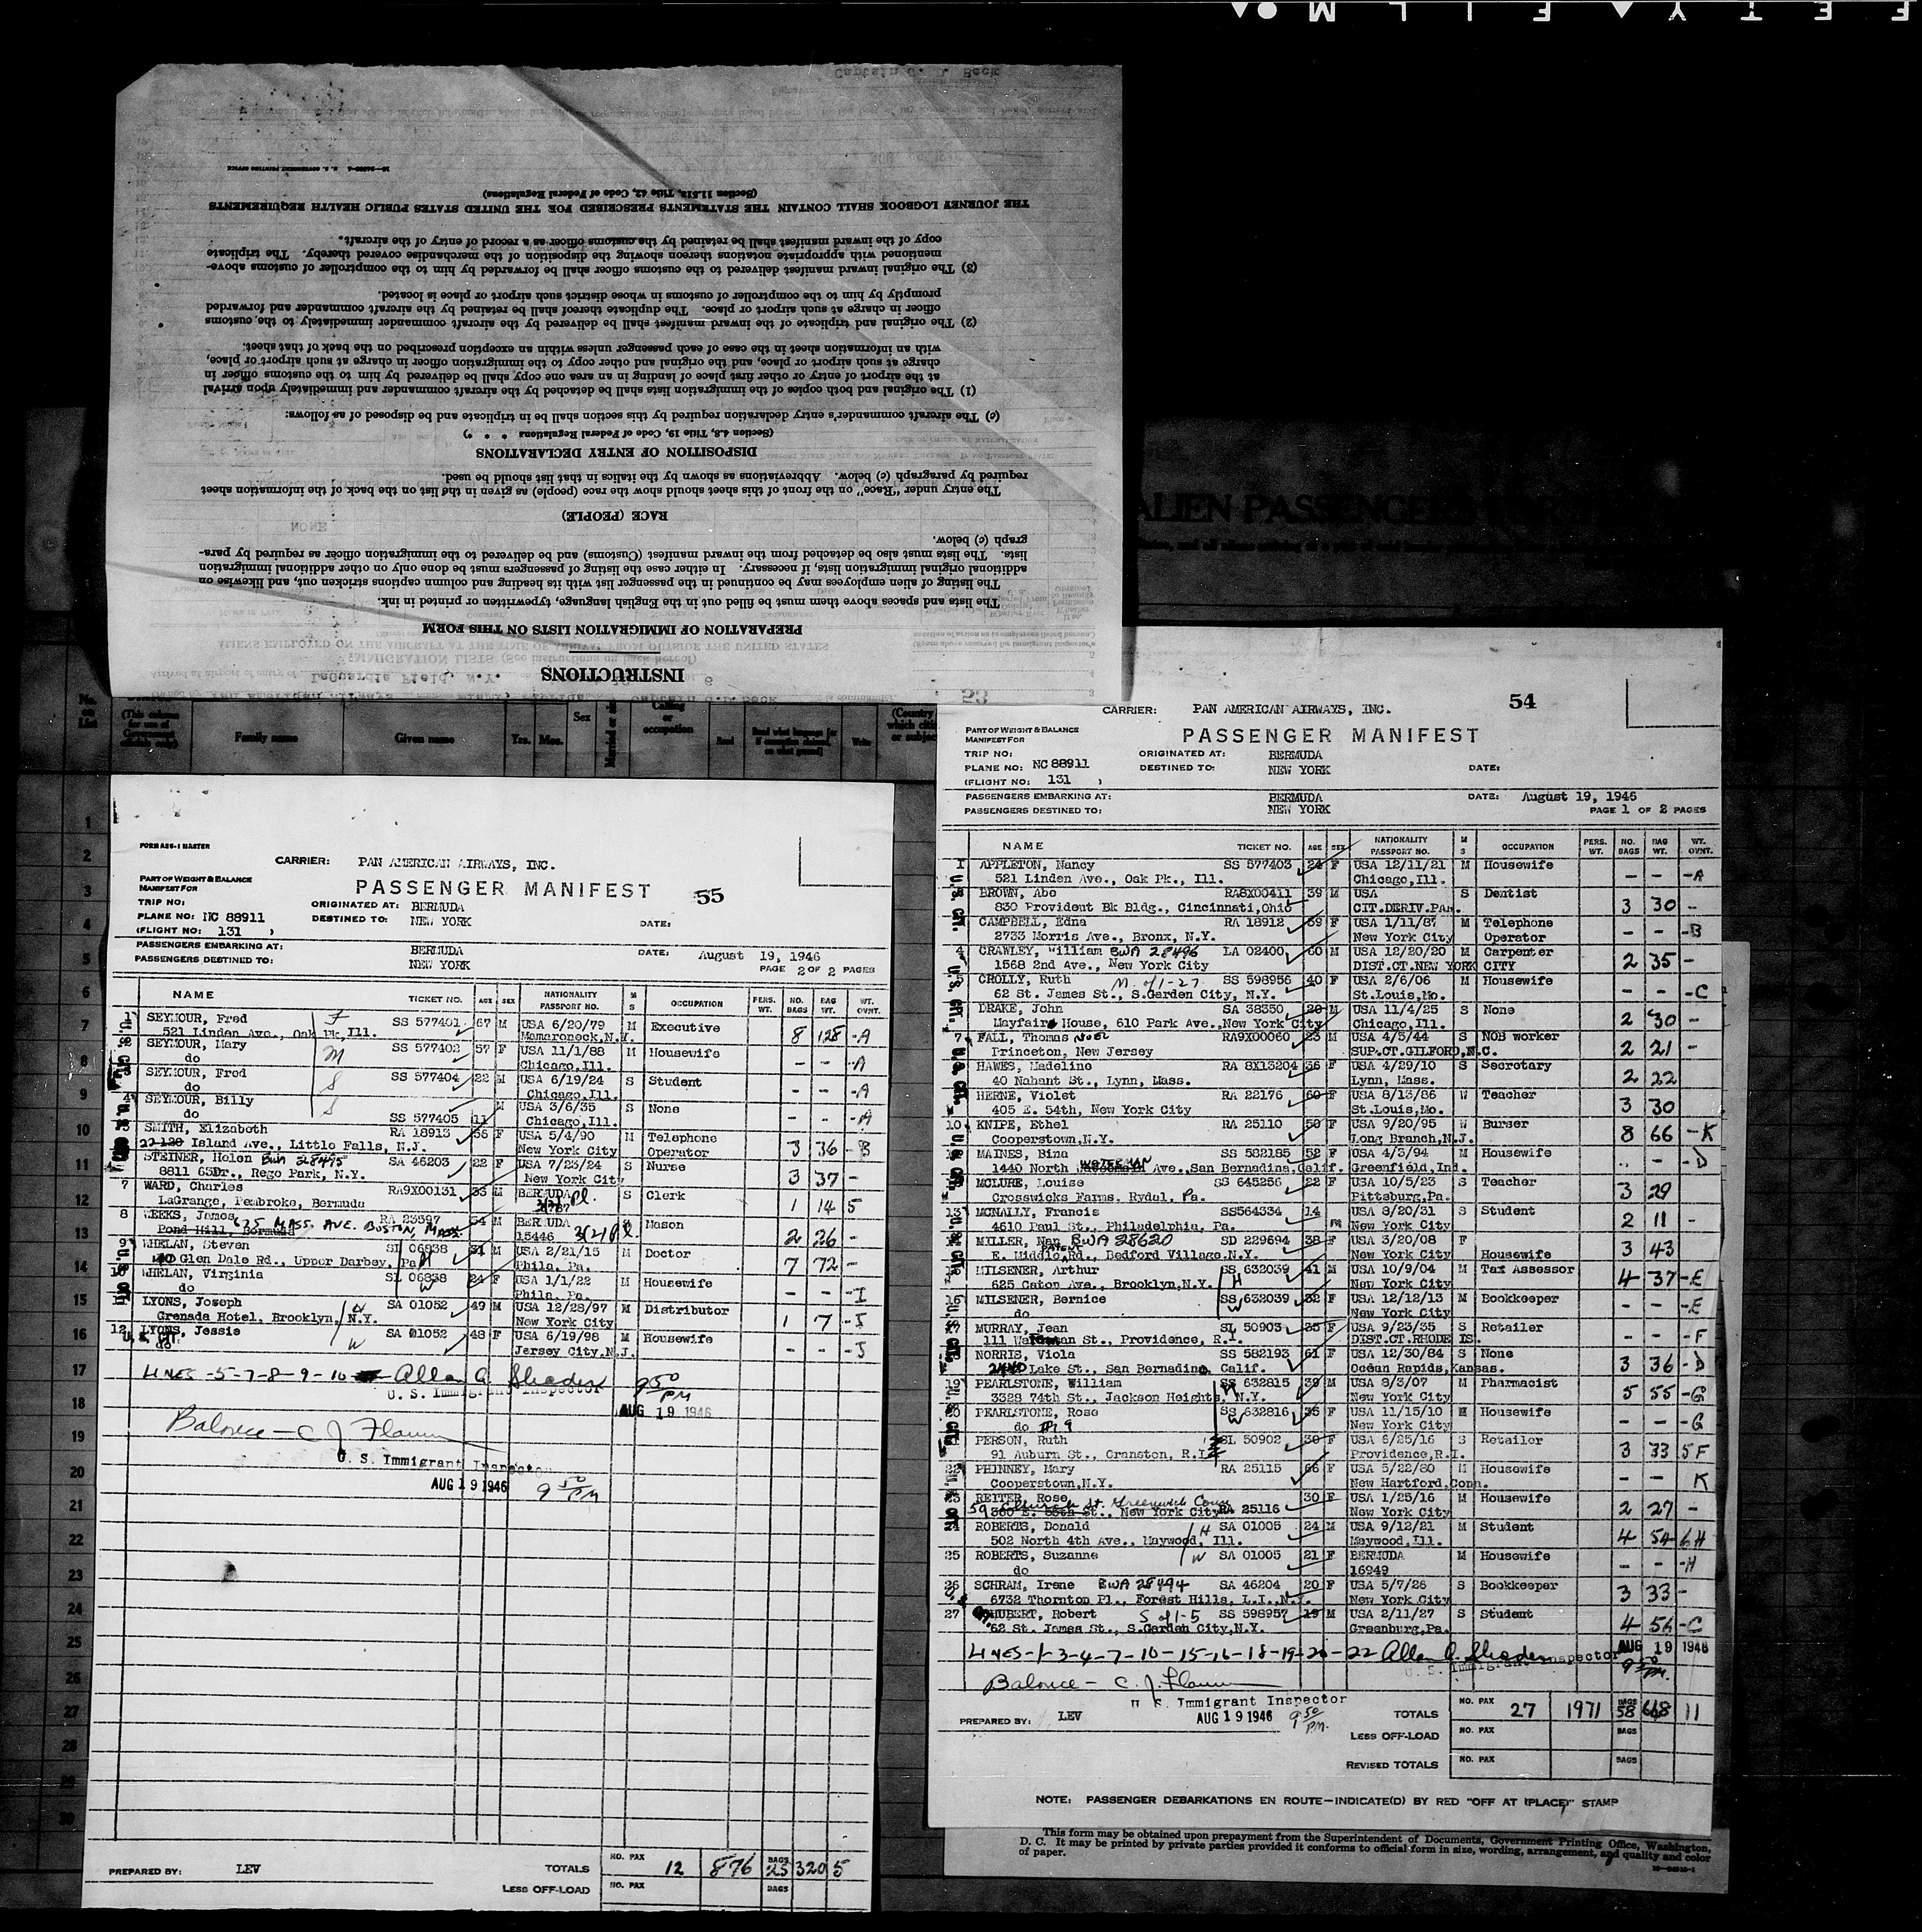 SAFETY FILM
INSTRUCTIONS
PREPARATION OF IMMIGRATION LISTS ON THIS FORM
The lists and spaces above them must be filled out in the English language, typewritten or printed in ink.
The listing of alien employees may be continued in the passenger list with its heading and column captions stricken out, and likewise on
additional original immigration lists, if necessary. In either case the listing of passengers must be done only on other additional immigration
lists. The lists must also be detached from the inward manifest (Customs) and be delivered to the immigration officer as required by para-
graph (c) below.
RACE (PEOPLE)
The entry under "Race" on the front of this sheet should show the race (people) as given in the list on the back of the information sheet
required by paragraph (c) below. Abbreviations as shown by the italics in that list should be used.
DISPOSITION OF ENTRY DECLARATIONS
(Section 4.8, Title 19, Code of Federal Regulations * * *)
(c) The aircraft commander's entry declaration required by this section shall be in triplicate and be disposed of as follows:
(1) The original and both copies of the immigration lists shall be detached by the aircraft commander and immediately upon arrival
at the airport of entry or other first place of landing in an area one copy shall be delivered by him to the customs officer in
charge at such airport or place, and the original and other copy to the immigration officer in charge at such airport or place,
with an information sheet in the case of each passenger unless within an exception prescribed on the back of that sheet.
(2) The original and triplicate of the inward manifest shall be delivered by the aircraft commander immediately to the customs
officer in charge at such airport or place. The duplicate thereof shall be retained by the aircraft commander and forwarded
promptly by him to the comptroller of customs in whose district such airport or place is located.
(3) The original inward manifest delivered to the customs officer shall be forwarded by him to the comptroller of customs above-
mentioned with appropriate notations thereon showing the disposition of the merchandise covered thereby. The triplicate
copy of the inward manifest shall be retained by the customs officer as a record of entry of the aircraft.
THE JOURNEY LOGBOOK SHALL CONTAIN THE STATEMENTS PRESCRIBED FOR THE UNITED STATES PUBLIC HEALTH REQUIREMENTS
(Section 11.512, Title 42, Code of Federal Regulations)
ALIEN PASSENGERS
Family name Given name Yrs. Mos. Sex Calling or occupation Read Write
54
CARRIER: PAN AMERICAN AIRWAYS, INC.
PART OF WEIGHT & BALANCE MANIFEST FOR
PASSENGER MANIFEST
TRIP NO: ORIGINATED AT: BERMUDA
PLANE NO: NC 88911 DESTINED TO: NEW YORK DATE:
(FLIGHT NO: 131 )
PASSENGERS EMBARKING AT: BERMUDA DATE: August 19, 1946
PASSENGERS DESTINED TO: NEW YORK PAGE 1 OF 2 PAGES
NAME TICKET NO. AGE SEX NATIONALITY PASSPORT NO. M S OCCUPATION PERS. WT. NO. BAGS BAG WT. WT. OVNT.
1 APPLETON, Nancy SS 577403 24 F USA 12/11/21 M Housewife
521 Linden Ave., Oak Pk., Ill. Chicago,Ill. - - -A
BROWN, Abe RA8X00411 39 M USA S Dentist
830 Provident Bk Bldg., Cincinnati,Ohio CIT.DERIV.PAR. 3 30 -
CAMPBELL, Edna RA 18912 59 F USA 1/11/87 M Telephone
2733 Morris Ave., Bronx, N.Y. New York City Operator - - -B
4 CRAWLEY, William BWA 28496 LA 02400 60 M USA 12/20/20 M Carpenter
1568 2nd Ave., New York City DIST.CT.NEW YORK CITY 2 35 -
CROLLY, Ruth M. of 1-27 SS 598956 40 F USA 2/6/06 M Housewife
62 St. James St., S.Garden City, N.Y. St.Louis,Mo. - - -C
DRAKE, John SA 38350 20 M USA 11/4/25 S None
Mayfair House, 610 Park Ave.,New York City Chicago,Ill. 2 30 -
7 FALL, Thomas NOEL RA9X00060 23 M USA 4/5/44 S NOB worker
Princeton, New Jersey SUP.CT.GILFORD,N.C. 2 21 -
HAWES, Madeline RA 8X13204 36 F USA 4/29/10 S Secretary
40 Nahant St., Lynn, Mass. Lynn, Mass. 2 22
HERNE, Violet RA 22176 60 F USA 8/13/86 W Teacher
405 E. 54th, New York City St.Louis,Mo. 3 30
10 KNIPE, Ethel RA 25110 50 F USA 9/20/95 W Burser
Cooperstown,N.Y. Long Branch,N.J. 8 66 -K
MAINES, Bina SS 582185 52 F USA 4/3/94 M Housewife
1440 North WATERMAN Ave.,San Bernadina,Calif. Greenfield,Ind. - - -D
MCLURE, Louise SS 645256 22 F USA 10/5/23 S Teacher
Crosswicks Farms, Rydal, Pa. Pittsburg,Pa. 3 29
13 MCNALLY, Francis SS564334 14 M USA 8/20/31 S Student
4610 Paul St., Philadelphia, Pa. New York City 2 11 -
MILLER, Nan BWA 28620 SD 229694 38 F USA 3/20/08 F
E. Middle PATENT Rd., Bedford Village,N.Y. New York City Housewife 3 43
MILSENER, Arthur SS 632039 41 M USA 10/9/04 M Tax Assessor
625 Caton Ave., Brooklyn,N.Y. H New York City 4 37 -E
16 MILSENER, Bernice SS 632039 32 F USA 12/12/13 M Bookkeeper
do W New York City - - -E
MURRAY, Jean SL 50903 35 F USA 9/23/35 S Retailer
111 St., Providence, R.I. DIST.CT.RHODE IS. - - -F
NORRIS, Viola SS 582193 61 F USA 12/30/84 S None
Lake St., San Bernadino, Calif. Ocean Rapids,Kansas. 3 36 -D
19 PEARLSTONE, William SS 632815 39 M USA 8/3/07 M Pharmacist
3328 74th St., Jackson Heights, N.Y. H New York City 5 55 -G
20 PEARLSTONE, Rose SS 632816 35 F USA 11/15/10 M Housewife
do W New York City - - -G
PERSON, Ruth SL 50902 30 F USA 6/25/16 S Retailer
91 Auburn St., Cranston, R.I. Providence,R.I. 3 33 5F
22 PHINNEY, Mary RA 25115 66 F USA 5/22/80 M Housewife
Cooperstown,N.Y. New Hartford,Conn. - - K
23 REITER, Rose 30 F USA 1/25/16 M Housewife
59 Church St. Greenwich Conn 360 E. 55th St., New York City RA 25116 New York City 2 27 -
ROBERTS, Donald H SA 01005 24 M USA 9/12/21 M Student
502 North 4th Ave., Maywood, Ill. Maywood,Ill. 4 54 6H
25 ROBERTS, Suzanne W SA 01005 21 F BERMUDA M Housewife
do 16249 - - -H
26 SCHRAM, Irene BWA 28494 SA 46204 20 F USA 5/7/26 S Bookkeeper
6732 Thornton Pl., Forest Hills, L.I.,N.Y. New York City 3 33 -
27 SHUBERT, Robert S of 1-5 SS 598957 19 M USA 2/11/27 S Student
62 St. James St., S.Garden City,N.Y. Greenburg,Pa. 4 56 -C
LINES-1-3-4-7-10-15-16-18-19-20-22 Allan A. Shader AUG 19 1946
U. S. Immigrant Inspector 9 50 PM.
Balance - C. J. Flamm
U. S. Immigrant Inspector
PREPARED BY: LEV AUG 19 1946 9 50 P.M. TOTALS NO. PAX 27 1971 BAGS 58 668 11
LESS OFF-LOAD NO. PAX BAGS
REVISED TOTALS NO. PAX BAGS
NOTE: PASSENGER DEBARKATIONS EN ROUTE—INDICATE(D) BY RED "OFF AT (PLACE)" STAMP
This form may be obtained upon prepayment from the Superintendent of Documents, Government Printing Office, Washington,
D. C. It may be printed by private parties provided it conforms to official form in size, wording, arrangement, and quality and color
of paper.
FORM A86-1 MASTER
CARRIER: PAN AMERICAN AIRWAYS, INC.
PART OF WEIGHT & BALANCE MANIFEST FOR
PASSENGER MANIFEST 55
TRIP NO: ORIGINATED AT: BERMUDA
PLANE NO: NC 88911 DESTINED TO: NEW YORK DATE:
(FLIGHT NO: 131 )
PASSENGERS EMBARKING AT: BERMUDA DATE: August 19, 1946
PASSENGERS DESTINED TO: NEW YORK PAGE 2 OF 2 PAGES
NAME TICKET NO. AGE SEX NATIONALITY PASSPORT NO. M S OCCUPATION PERS. WT. NO. BAGS BAG WT. WT. OVNT.
1 SEYMOUR, Fred F SS 577401 67 M USA 6/20/79 M Executive
521 Linden Ave., Oak Pk, Ill. Mamaroneck,N.Y. 8 128 -A
SEYMOUR, Mary M SS 577402 57 F USA 11/1/88 M Housewife
do Chicago,Ill. - - -A
SEYMOUR, Fred S SS 577404 22 M USA 6/19/24 S Student
do Chicago,Ill. - - -A
4 SEYMOUR, Billy S M USA 3/6/35 S None
do SS 577405 11 Chicago,Ill. - - -A
SMITH, Elizabeth RA 18913 56 F USA 5/4/90 M Telephone
22-120 Island Ave., Little Falls, N.J. New York City Operator 3 36 -B
STEINER, Helen BWA 28495 SA 46203 22 F USA 7/23/24 S Nurse
8811 63Dr., Rego Park, N.Y. New York City 3 37 -
7 WARD, Charles RA9X00131 33 M BERMUDA S Clerk
LaGrange, Pembroke, Bermuda 1 14 5
8 WEEKS, James RA 23597 54 M BERMUDA Mason
Pond Hill, Bermuda 675 MASS. AVE. BOSTON, MASS. 15446 3(2) 2 26 -
9 WHELAN, Steven SL 06838 31 M USA 2/21/15 M Doctor
Glen Dale Rd., Upper Darbey, Pa. H Phila. Pa. 7 72 -
10 WHELAN, Virginia SL 06838 24 F USA 1/1/22 M Housewife
do W Phila. Pa. - - -I
LYONS, Joseph SA 01052 49 M USA 12/28/97 M Distributor
Grenada Hotel, Brooklyn, N.Y. H New York City 1 7 -J
12 LYONS, Jessie SA 01052 48 F USA 6/19/98 M Housewife
do W Jersey City,N.J. - - -J
LINES -5-7-8-9-10 Allan A. Shader 9 50 PM
U. S. Immigrant Inspector AUG 19 1946
Balance - C J Flamm
U. S. Immigrant Inspector
AUG 19 1946 9 50 PM
PREPARED BY: LEV TOTALS NO. PAX 12 876 BAGS 25 320 5
LESS OFF-LOAD NO. PAX BAGS